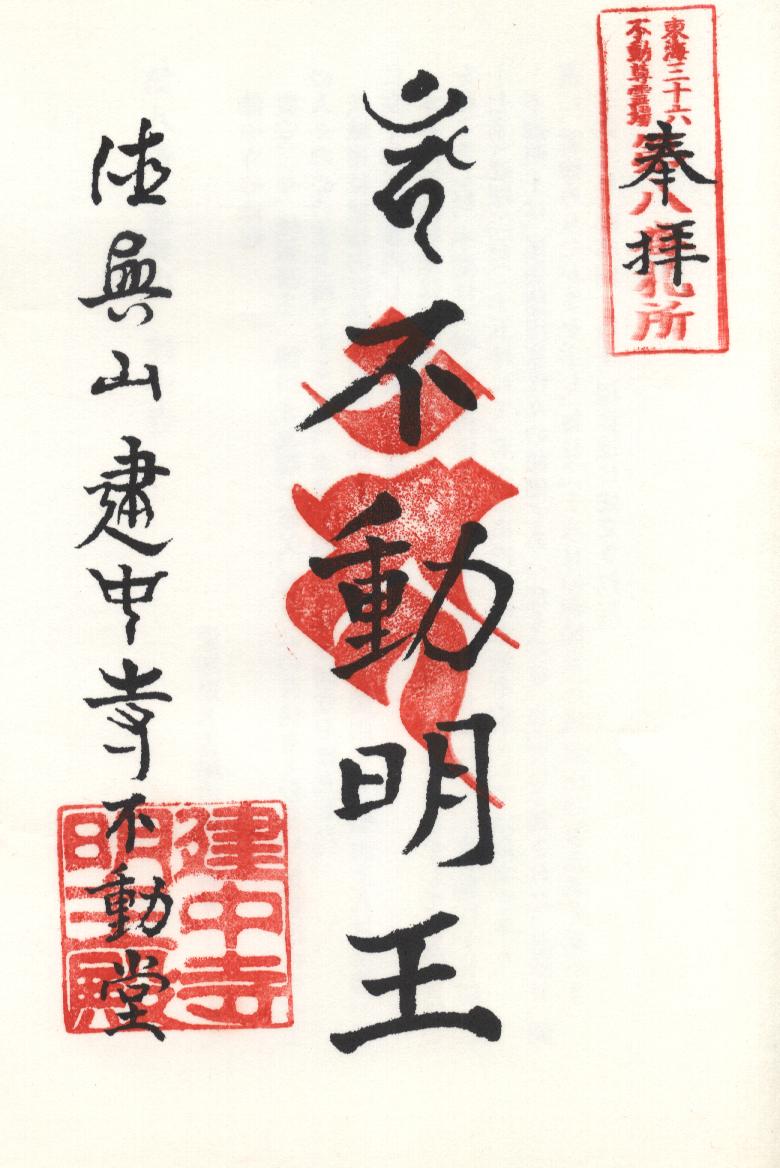 東海三十六
不動尊霊場
第八番札所
奉拝
不動明王
徳興山建中寺不動堂
建中寺
明王殿